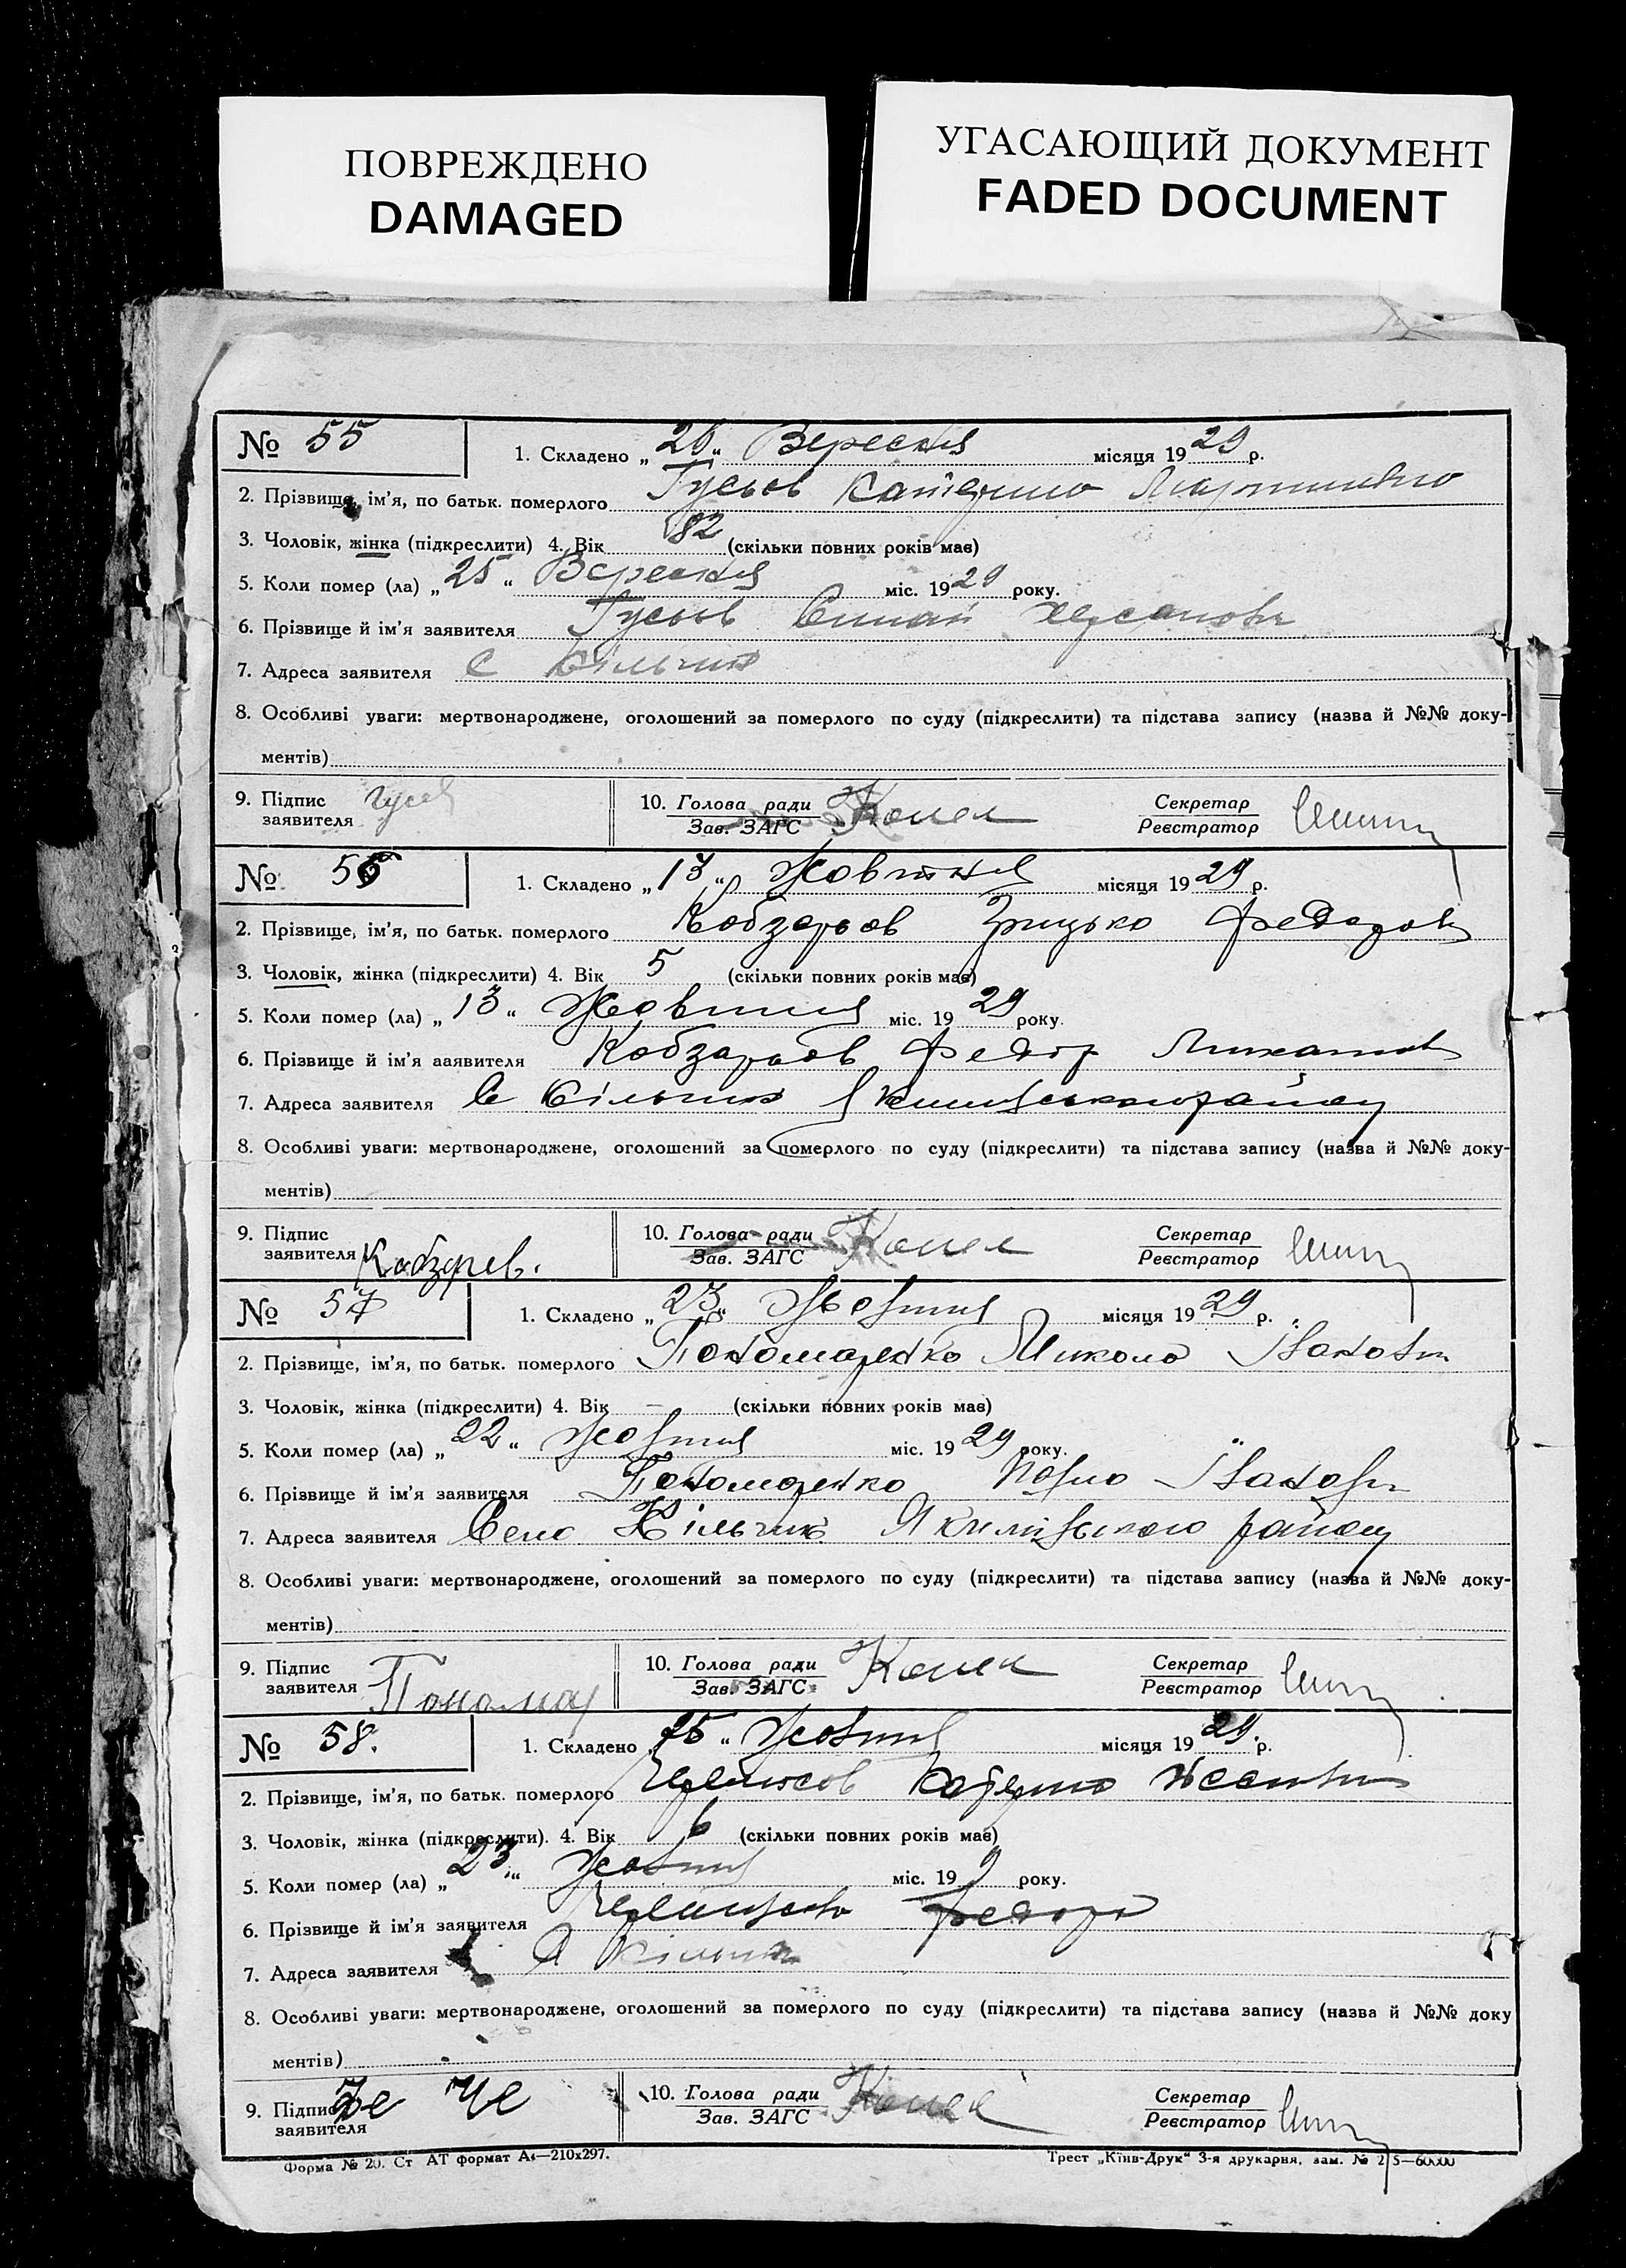 ПОВРЕЖДЕНО
DAMAGED
УГАСАЮЩИЙ ДОКУМЕНТ
FADED DOCUMENT
№ 55 1. Складено „26“ Вересня місяця 1929 р.
2. Прізвище, ім'я, по батьк. померлого Гусьов Катерина Мартинівна
3. Чоловік, жінка (підкреслити) 4. Вік 82 (скільки повних років має)
5. Коли помер (ла) „25“ Вересня міс. 1929 року.
6. Прізвище й ім'я заявителя Гусьов
7. Адреса заявителя С Кільчик
8. Особливі уваги: мертвонароджене, оголошений за померлого по суду (підкреслити) та підстава запису (назва й №№ доку-
ментів)
9. Підпис заявителя Гусев 10. Голова ради Зав. ЗАГС Секретар Реєстратор
№ 56 1. Складено „13“ Жовтня місяця 1929 р.
2. Прізвище, ім'я, по батьк. померлого Кобзарьов Грицько Федоров
3. Чоловік, жінка (підкреслити) 4. Вік 5 (скільки повних років має)
5. Коли помер (ла) „13“ Жовтня міс. 1929 року.
6. Прізвище й ім'я заявителя Кобзарьов Федір
7. Адреса заявителя С Кільчик району
8. Особливі уваги: мертвонароджене, оголошений за померлого по суду (підкреслити) та підстава запису (назва й №№ доку-
ментів)
9. Підпис заявителя Кобзарев. 10. Голова ради Зав. ЗАГС Секретар Реєстратор
№ 57 1. Складено „23“ Жовтня місяця 1929 р.
2. Прізвище, ім'я, по батьк. померлого Пономаренко Микола Іванович
3. Чоловік, жінка (підкреслити) 4. Вік — (скільки повних років має)
5. Коли помер (ла) „22“ Жовтня міс. 1929 року.
6. Прізвище й ім'я заявителя Пономаренко Іванович
7. Адреса заявителя Село Кільчик Якимівського району
8. Особливі уваги: мертвонароджене, оголошений за померлого по суду (підкреслити) та підстава запису (назва й №№ доку-
ментів)
9. Підпис заявителя Пономар 10. Голова ради Зав. ЗАГС Секретар Реєстратор
№ 58. 1. Складено „25“ Жовтня місяця 1929. р.
2. Прізвище, ім'я, по батьк. померлого Катерина
3. Чоловік, жінка (підкреслити). 4. Вік 6 (скільки повних років має)
5. Коли помер (ла) „23“ Жовтня міс. 199 року.
6. Прізвище й ім'я заявителя Федора
7. Адреса заявителя Кільчик
8. Особливі уваги: мертвонароджене, оголошений за померлого по суду (підкреслити) та підстава запису (назва й №№ доку
ментів)
9. Підпис заявителя Че 10. Голова ради Зав. ЗАГС Секретар Реєстратор
Форма № 20. Ст АТ формат А4—210x297. Трест „Київ-Друк“ 3-я друкарня, зам. №